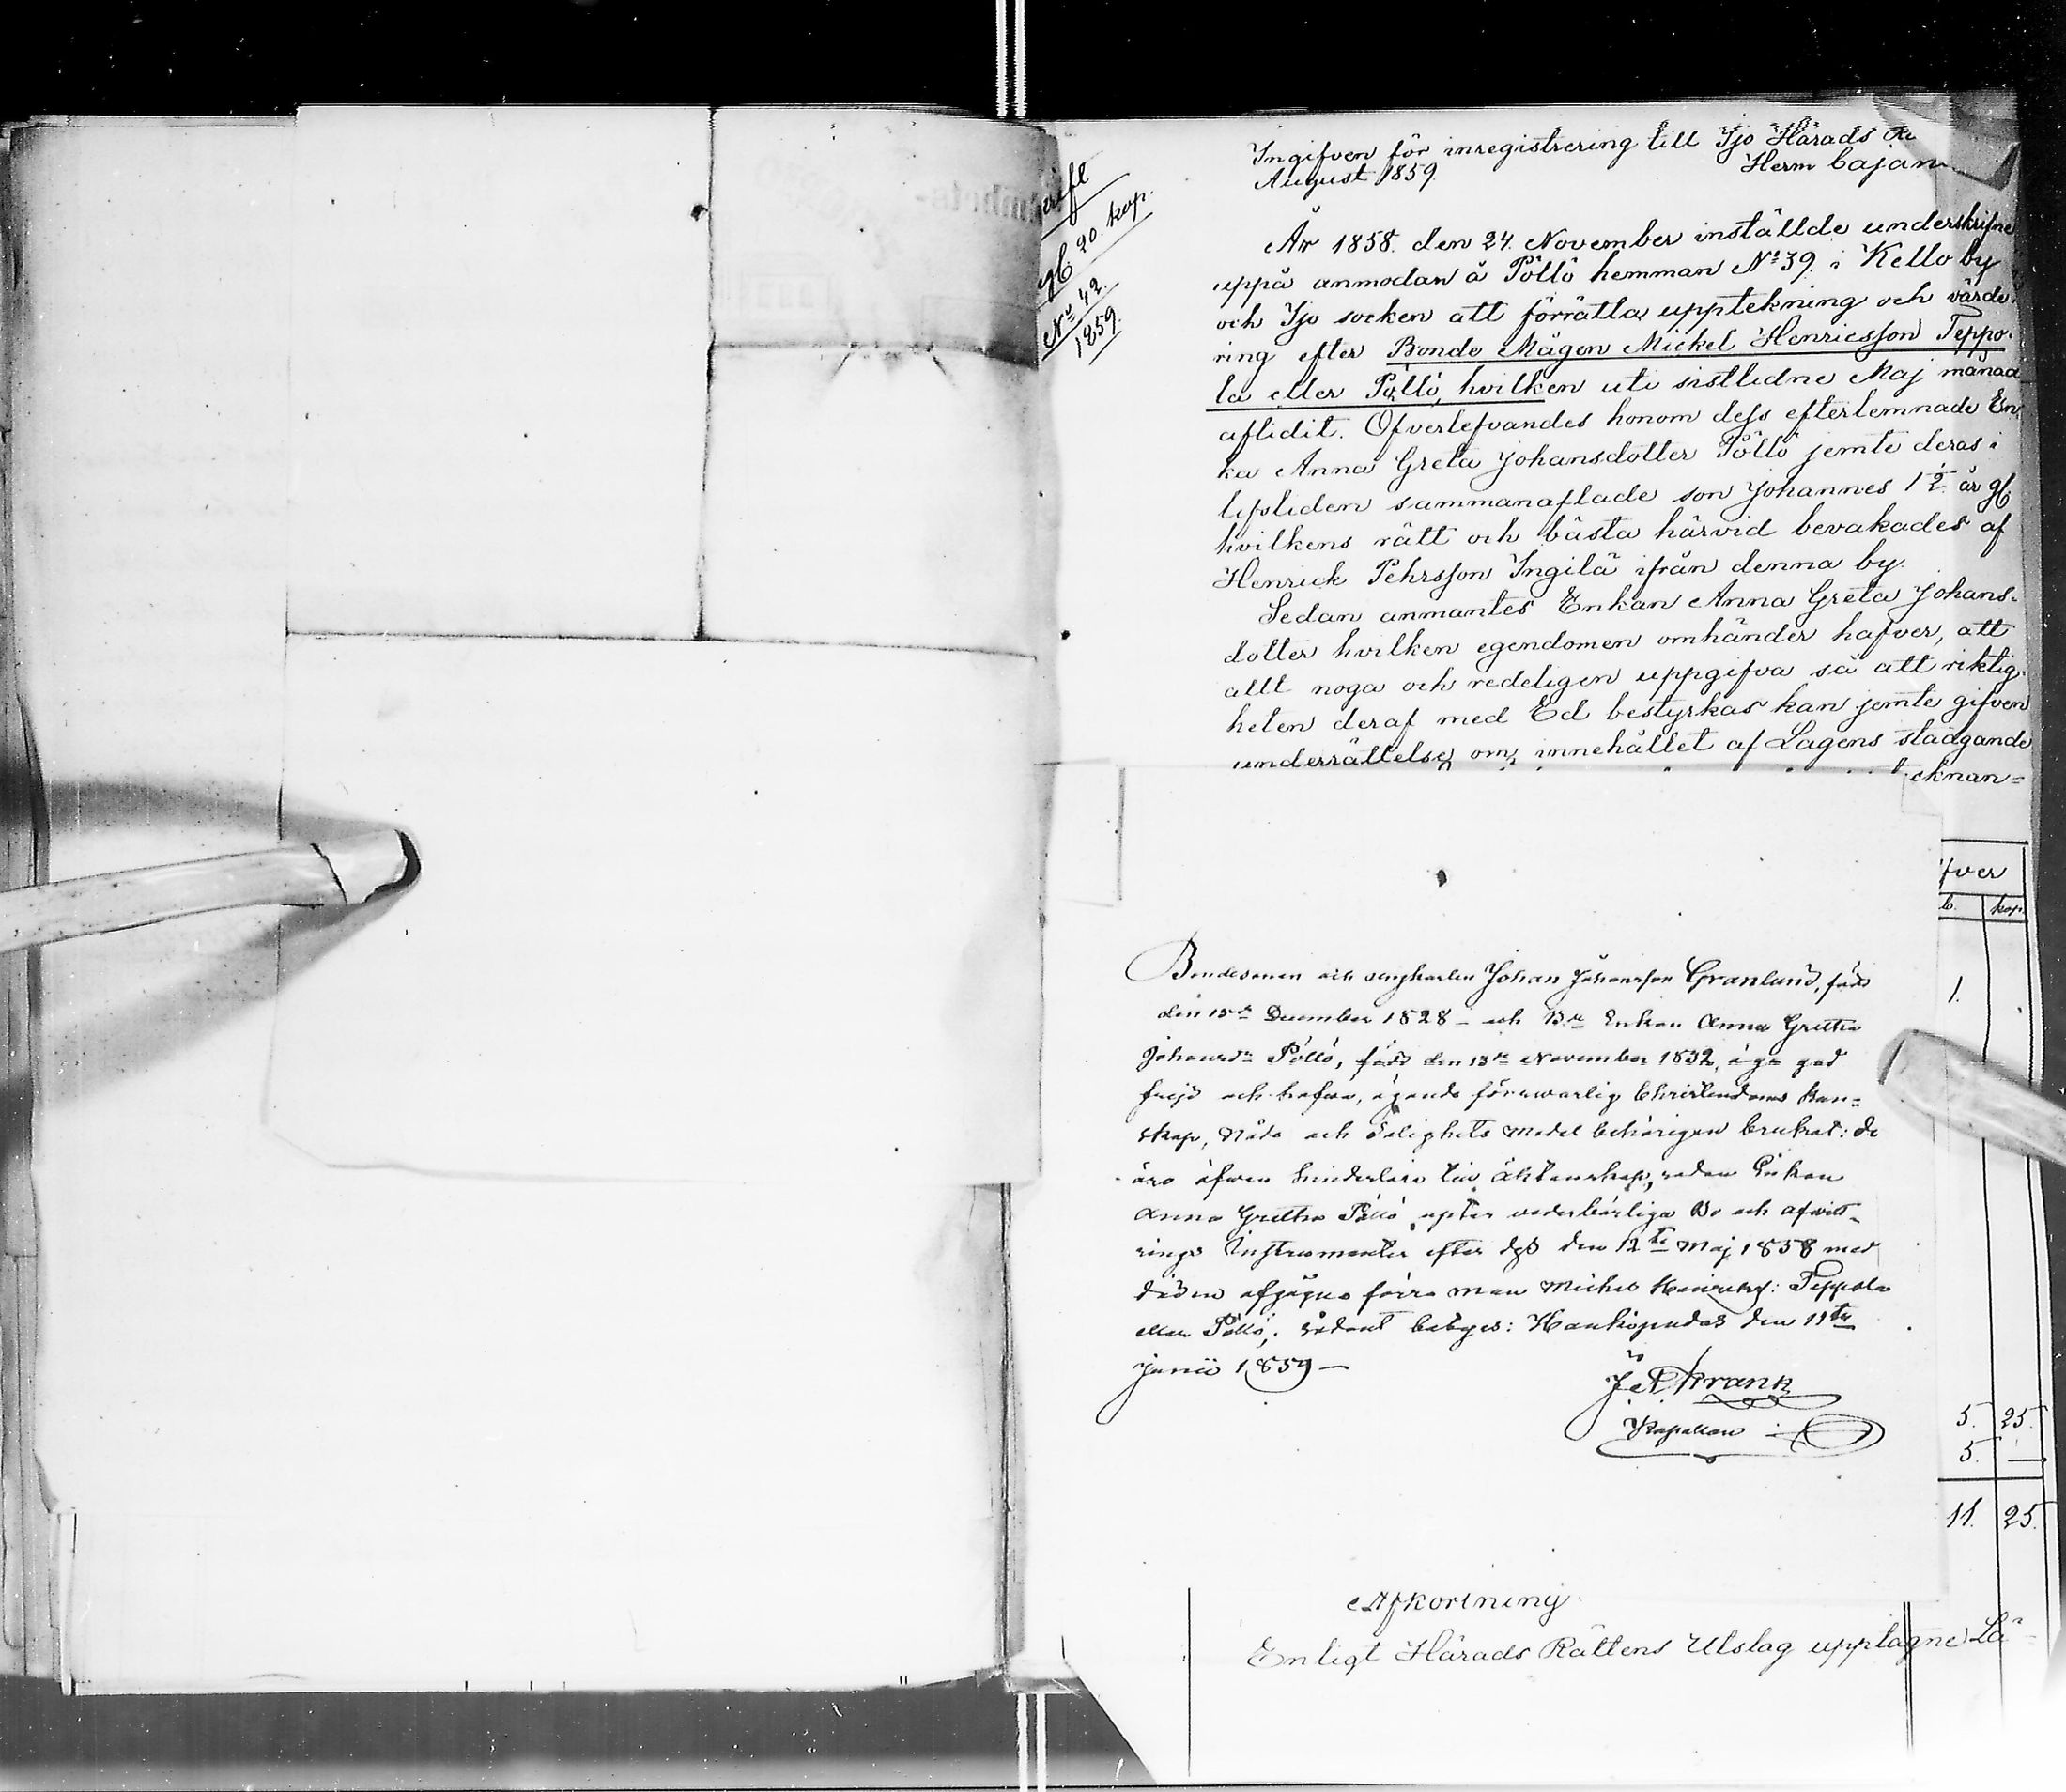 Ingifven för inregistrering till Ijo Härads Rä
August 1859.
Herm Cajan
rift
gb. 20 kop.
No 42.
1859.
År 1858. den 24. November inställde underskrifne
uppå anmodan å Pöllö hemman No 39. i Kello by
och Ijo socken att förrätta upptekning och värde-
ring efter Bonde Mågen Mickel Henricsson Teppo-
la eller Pöllö, hvilken uti sistlidne Maj månad
aflidit. Öfverlefvandes honom dess efterlemnade En-
ka Anna Greta Johansdotter Pöllö jemte deras i
lifstiden sammanaflade son Johannes 1 1/2 år gl
hvilkens rätt och bästa härvid bevakades af
Henrick Pehrsson Ingilä ifrån denna by.
Sedan anmantes Enkan Anna Greta Johans-
dotter hvilken egendomen omhänder hafver, att
allt noga och redeligen uppgifva så att riktig-
heten deraf med Ed bestyrkas kan jemte gifven
underrättelse om innehållet af Lagens stadgande
eknan=
fver
b. kop.
1.
Bondesonen och ungkarlen Johan Johansson Granlund, född
den 15de December 1828 – och B.e Enkan Anna Gretha
Johansdr Pöllö, född den 13de November 1832, äga god
frejd och hafva, ägande försvarlig Christendoms kun=
skap, Nåde och Salighets medel behörigen brukat: de
äro äfwen hinderlöse till äktenskap, sedan Enkan
Anna Gretha Pöllö, efter vederbörliga Bo och afvitt-
rings Instrumenter efter dess den 12te Maj 1858 med
döden afgågne förre man Michel Henricss: Teppola
eller Pöllö; sådant betygas: Haukipudas den 11te
Junii 1859 –
J A Krank
Kapellan
5. 25.
5. –
11. 25.
Afkortning
Enligt Härads Rättens Utslag upptagne Lä-